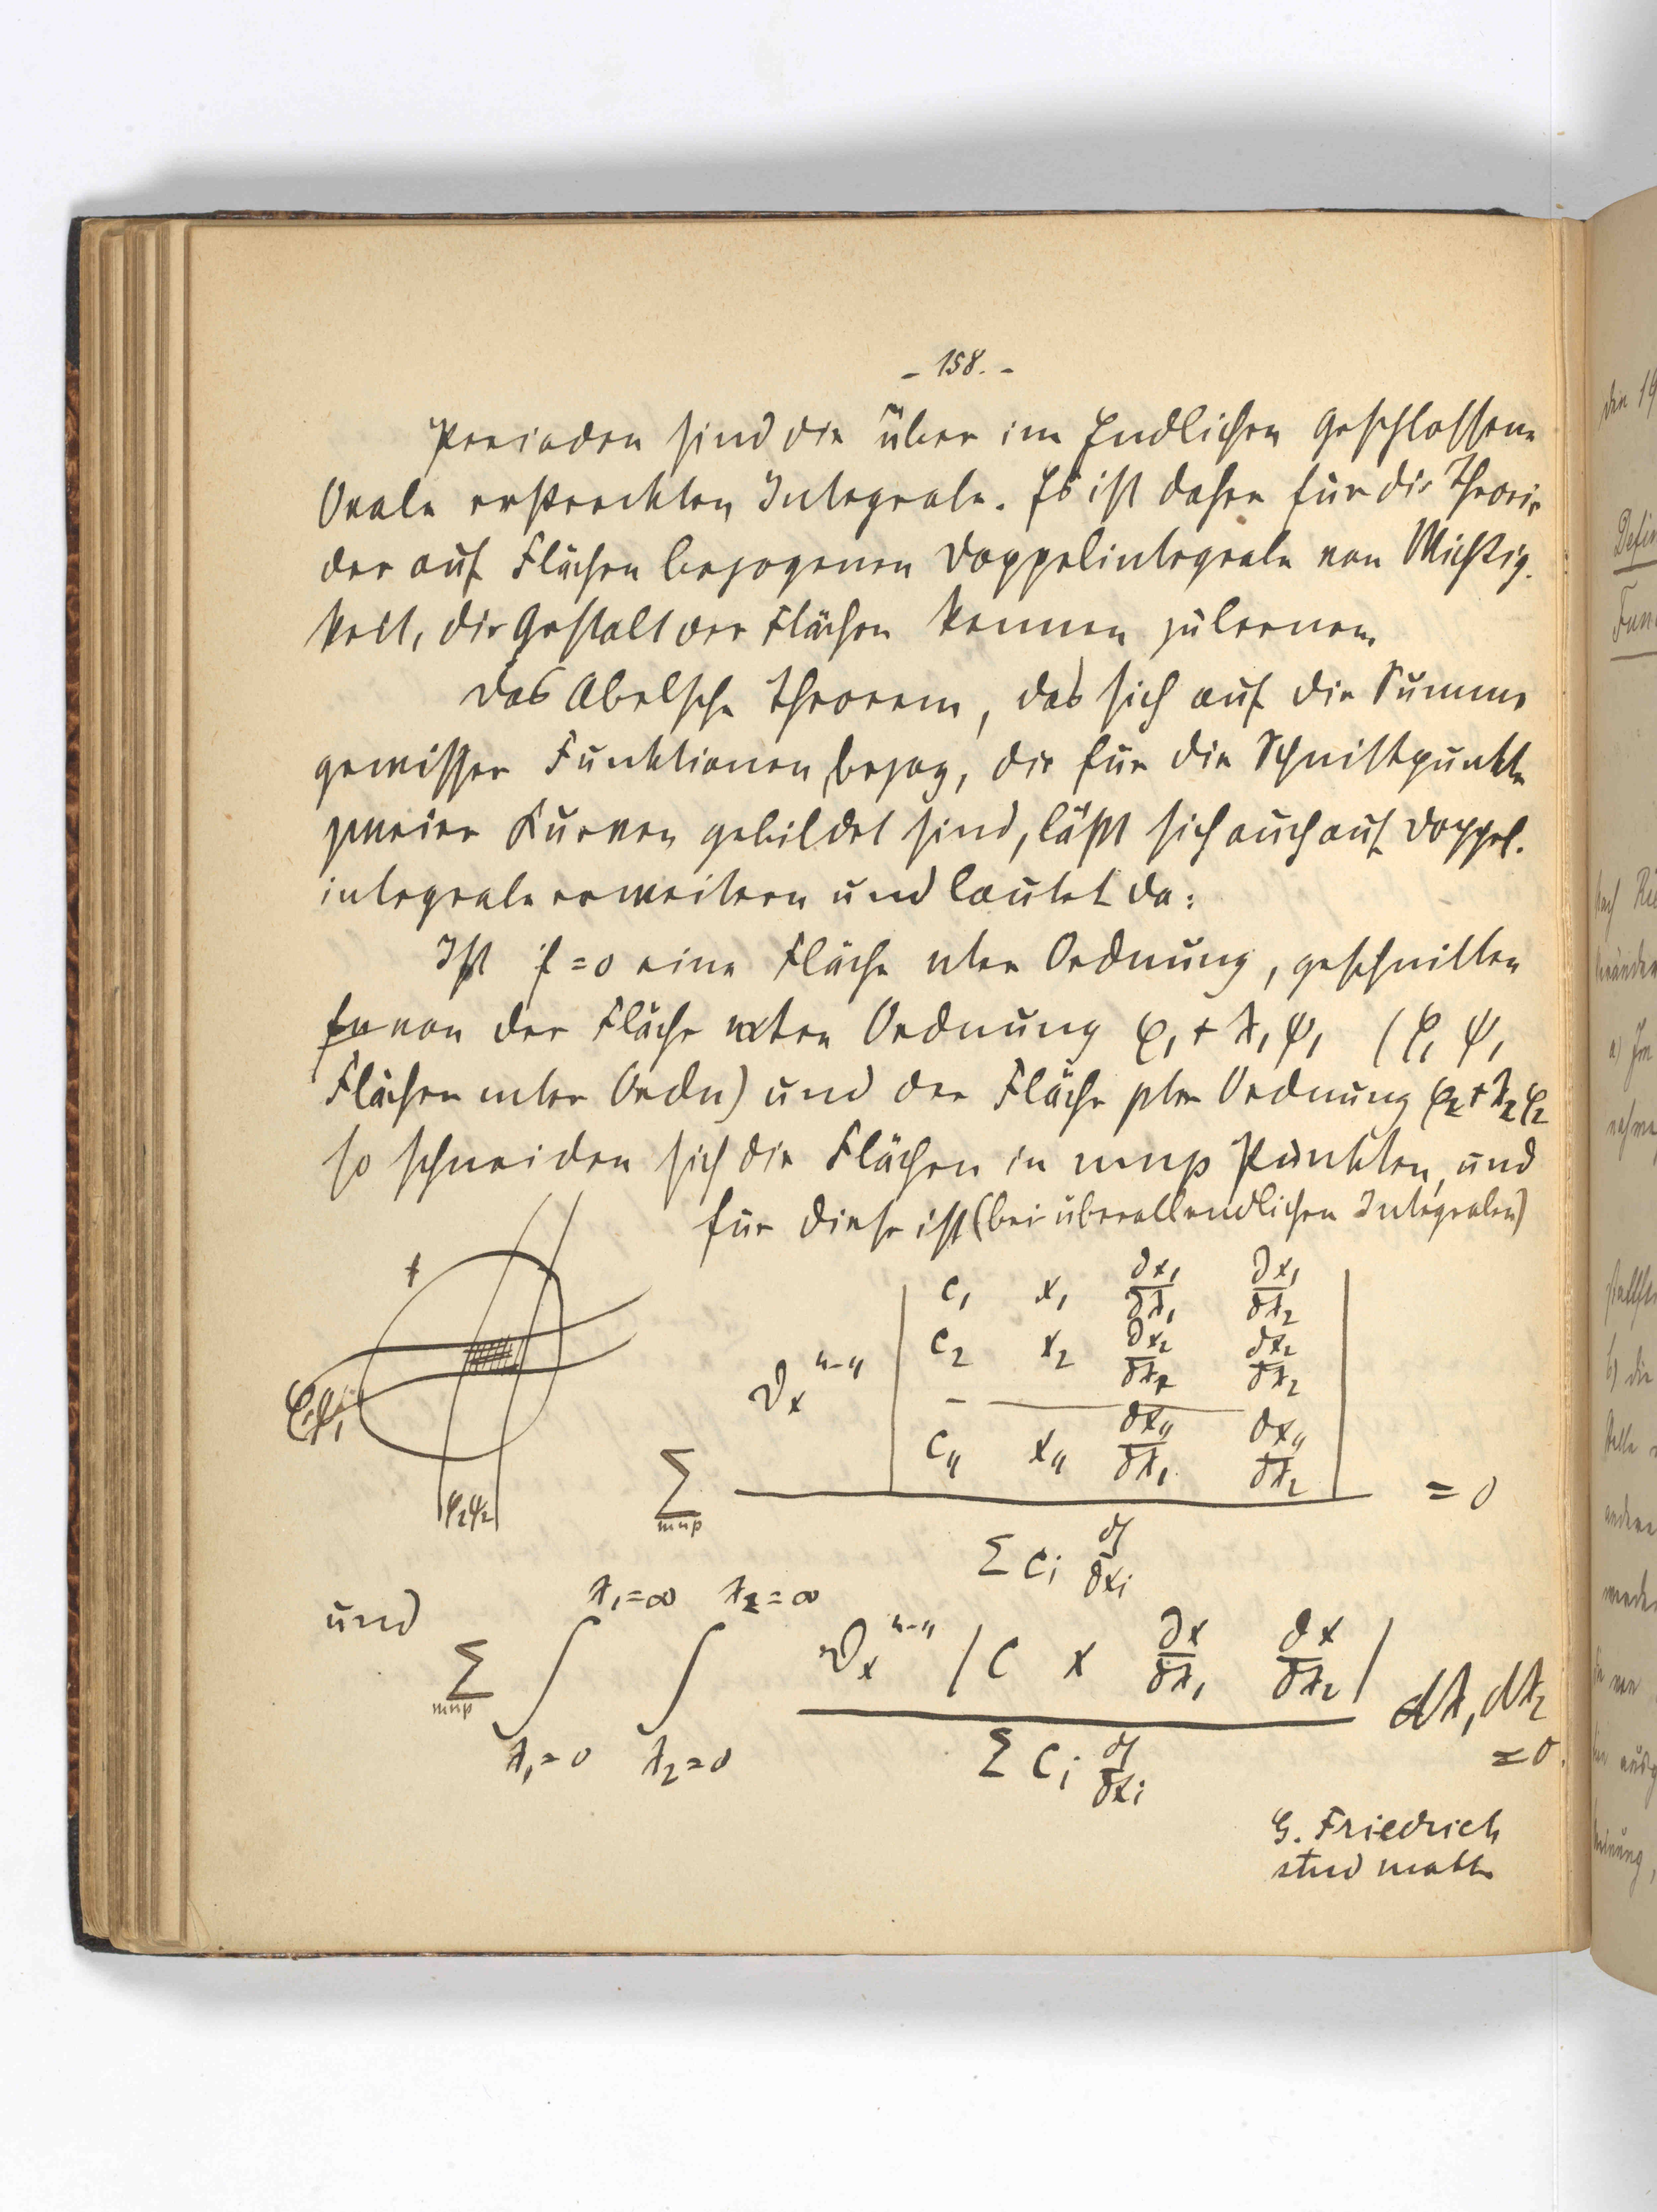 - 158. -
Perioden sind die über im Endlichen geschlossene
Ovale erstreckten Integrale. Es ist daher für die Theorie
der auf Flächen bezogenen Doppelintegrale von Wichtig-
keit, die Gestalt der Flächen kennen zu lernen.
Das Abelsche Theorem, das sich auf die Summe
gewisser Funktionen bezog, die für die Schnittpunkte
zweier Kurven gebildet sind, läßt sich auch auf Doppel-
integrale erweitern und lautet da:
Ist f = 0 eine Fläche nter Ordnung, geschnitten
von der Fläche mter Ordnung φ₁ + λ₁ψ₁ (φ₁ ψ₁
Flächen mter Ordn) und der Fläche pter Ordnung φ₂ + λ₂φ₂
so schneiden sich die Flächen in mnp Punkten, und
für diese ist (bei überallendlichen Integralen)
f
φ₁ψ₁
φ₂ψ₂
c₁ x₁ ∂x₁/∂λ₁ ∂x₁/∂λ₂
c₂ x₂ ∂x₂/∂λ₁ ∂x₂/∂λ₂
ϑₓⁿ⁻⁴
c₄ x₄ ∂x₄/∂λ₁ ∂x₄/∂λ₂
∑ mnp = 0
∑ cᵢ ∂f/∂xᵢ
und
λ₁ = ∞ λ₂ = ∞
∑ mnp ∫ ∫ ϑₓⁿ⁻⁴ | c x ∂x/∂λ₁ ∂x/∂λ₂ | dλ₁ dλ₂
λ₁ = 0 λ₂ = 0 ∑ cᵢ ∂f/∂xᵢ = 0.
G. Friedrich
stud math